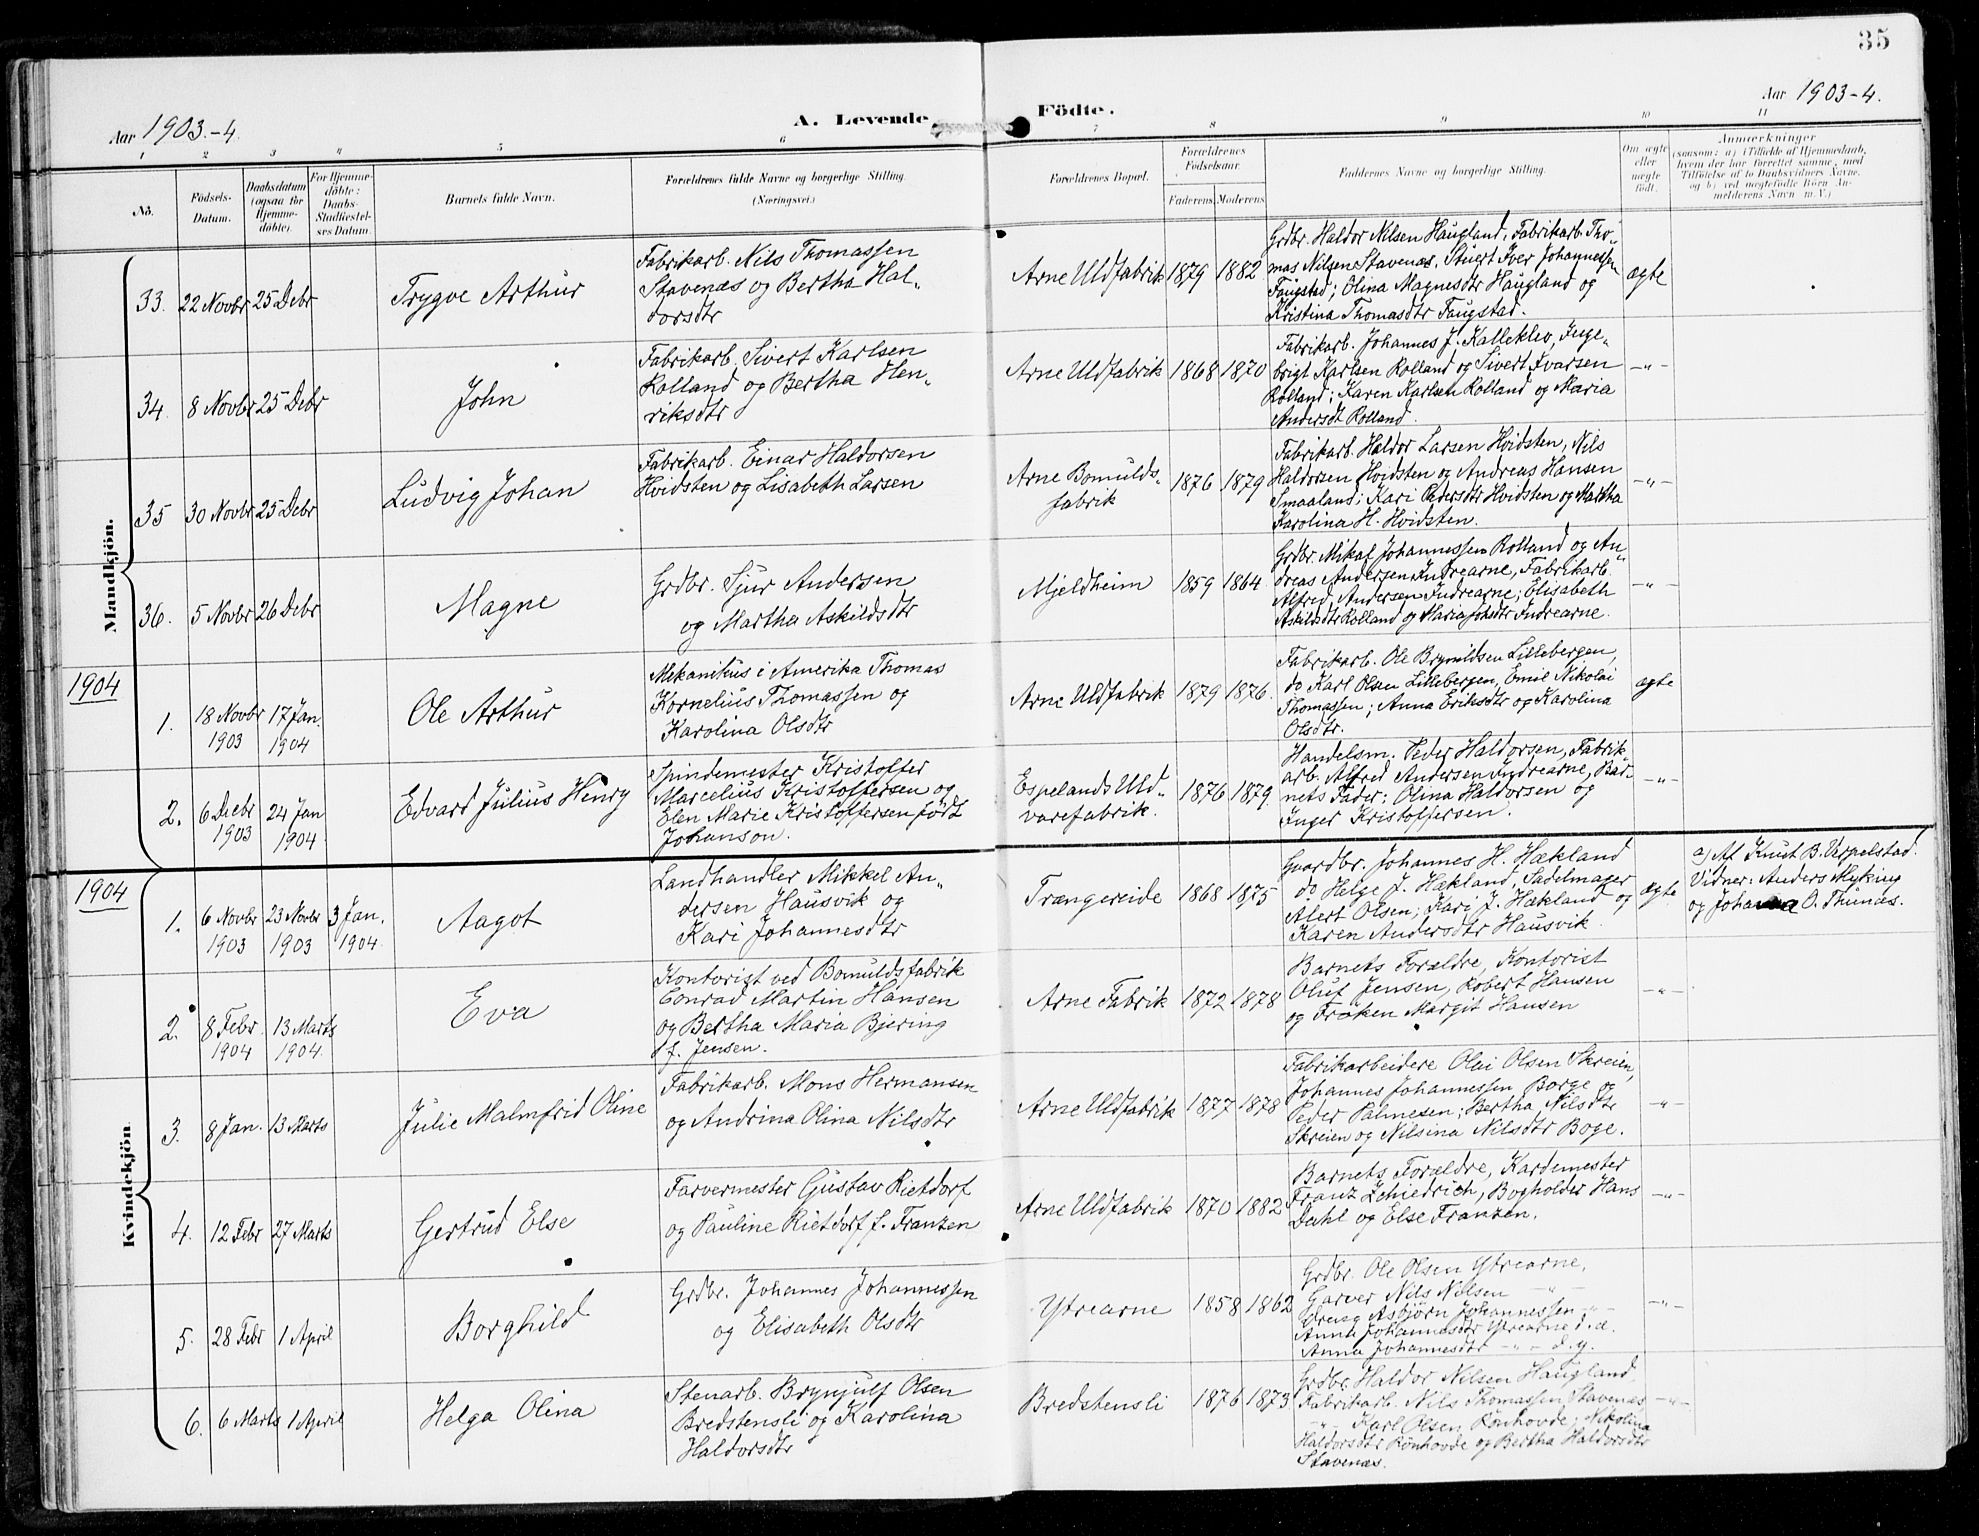 35
Aar 1903.-4.
A. Levende
Födte.
Aar 1903-4.
1 2 3 4 5 6 7 8 9 10 11
No.
Födsels-
Datum.
Daabsdatum
(ogsaa for
Hjemme-
döbte).
For Hjemme-
döbte:
Daabs-
Stadfæstel-
ses Datum.
Barnets fulde Navn.
Forældrenes fulde Navne og borgerlige Stilling.
(Næringsvei.)
Forældrenes Bopæl.
Forældrenes
Födselsaar.
Faderens. Moderens.
Faddernes Navne og borgerlige Stilling.
Om ægte
eller
uægte
födt.
Anmærkninger
(saasom: a) i Tilfælde af Hjemmedaab,
hvem der har forrettet samme, med
Tilföielse af to Daabsvidners Navne,
og b) ved uægtefödte Börn An-
melderens Navn m. V.)
Mandkjön.
33. 22 Novbr 25 Debr
Trygve Arthur
Fabrikarb. Nils Thomassen
Stavenæs og Bertha Hal-
dorsdtr
Arne Uldfabrik 1879 1882
Grdbr. Haldor Nilsen Haugland, Fabrikarb. Tho-
mas Nilsen Stavenæs, Stuert Iver Johannessen
Faugstad; Olina Magnesdtr Haugland og
Kristina Thomasdtr Faugstad.
ægte
34. 8 Novbr 25 Debr
John
Fabrikarb. Sivert Karlsen
Rolland og Bertha Hen-
riksdtr
Arne Uldfabrik 1868 1870
Fabrikarb. Johannes J. Kalleklev, Inge-
brigt Karlsen Rolland og Sivert Ivarsen
Rolland; Karen Karlsen Rolland og Maria
Andersdt Rolland.
-"-
35 30 Novbr 25 Debr
Ludvig Johan
Fabrikarb. Einar Haldorsen
Hvidsten og Lisabeth Larsen
Arne Bomulds-
fabrik
1876 1879
Fabrikarb. Haldor Larsen Hvidsten, Nils
Haldorsen Hvidsten og Andreas Hansen
Smaaland; Kari Pedersdtr Hvidsten og Martha
Karolina H. Hvidsten.
-"-
36. 5 Novbr 26 Debr
Magne
Grdbr. Sjur Andersen
og Martha Askildsdtr
Mjeldheim 1859 1864
Grdbr. Mikal Johannessen Rolland og An-
dreas Andersen Indrearne, Fabrikarb.
Alfred Andersen Indrearne; Elisabeth
Askildsdtr Rolland og Maria Johsdtr Indrearne.
-"-
1904
1. 18 Novbr 17 Jan.
1903 1904
Ole Arthur
Mekanikus i Amerika Thomas
Kornelius Thomassen og
Karolina Olsdtr
Arne Uldfabrik 1879 1876.
Fabrikarb. Ole Brynildsen Lillebergen,
do Karl Olsen Lillebergen, Emil Nikolai
Thomassen; Anna Eriksdtr og Karolina
Olsdtr.
ægte
2. 6 Debr 24 Jan
1903 1904
Edvard Julius Henry
Spindemester Kristoffer
Marcelius Kristoffersen og
Elen Marie Kristoffersen född
Johanson.
Espelands Uld-
varefabrik.
1876 1879
Handelsm. Peder Haldorsen, Fabrik
arb. Alfred Andersen Indrearne, Bar-
nets Fader; Olina Haldorsen og
Inger Kristoffersen.
-"-
Kvindekjön.
1904
1. 6 Novbr 23 Novbr 3 Jan.
1903 1903 1904.
Aagot
Landhandler Mikkel An-
dersen Hausvik og
Kari Johannesdtr
Trængereide 1868 1875
Gaardbr. Johannes H. Hækland
do Helge J. Hækland, Sadelmager
Alert Olsen; Kari J. Hækland og
Karen Andersdtr Hausvik.
ægte
a) Af Knut B. Vespelstad.
Vidner: Anders Myking
og Johanna O. Thunæs.
2. 8 Febr 13 Marts
1904 1904.
Eva
Kontorist ved Bomuldsfabrik
Conrad Martin Hansen
og Bertha Maria Bjering
f. Jensen.
Arne Fabrik 1872 1878
Barnets Forældre, Kontorist
Oluf Jensen, Robert Hansen
og Frøken Margit Hansen
-"-
3. 8 Jan. 13 Marts
Julie Malmfrid Oline
Fabrikarb. Mons Hermansen
og Andrina Olina Nilsdtr
Arne Uldfabrik 1877 1878
Fabrikarbeidere Olai Olsen Skreien,
Johannes Johannessen Borge og
Peder Palmesen; Bertha Nilsdtr
Skreien og Nilsina Nilsdtr Boge.
-"-
4. 12 Febr 27 Marts
Gertrud Else
Farvermester Gustav Rietdorf
og Pauline Rietdorf f. Franzen
Arne Uldfabrik 1870 1882
Barnets Forældre, Kardemester
Franz Schiedrich, Bogholder Hans
Dahl og Else Franzen.
-"-
5. 28 Febr 1 April
Borghild
Grdbr. Johannes Johannessen
og Elisabeth Olsdtr
Ytrearne 1858 1862
Grdbr. Ole Olsen Ytrearne,
Garver Nils Nilsen -"-
Dreng Asbjörn Johannessen -"-
Anna Johannesdtr Ytrearne d. æ.
Anna Johannesdtr -"- d. y.
-"-
6. 6 Marts 1 April
Helga Olina
Stenarb. Brynjulf Olsen
Bredstensli og Karolina
Haldorsdtr
Bredstensli 1876 1873
Grdbr. Haldor Nilsen Haugland,
Fabrikarb. Nils Thomassen Stavenæs
-"- Karl Olsen Rönhovde; Nikolina
Haldorsdtr Rönhovde og Bertha Haldorsdtr
Stavenæs.
-"-